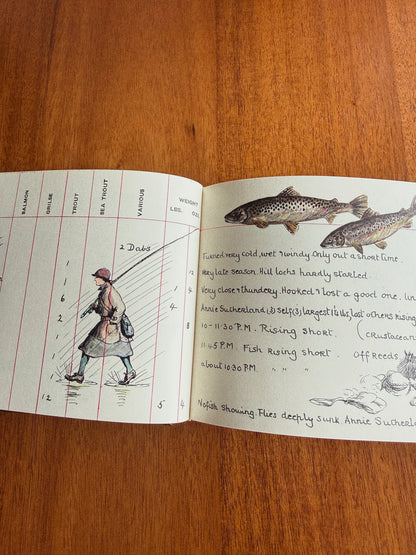 SALMON
GRILSE
TROUT
SEA TROUT
VARIOUS
WEIGHT
LBS. OZS
2 Dabs
12
1 1 4
6 4
2
1 8
1
1
12 5 4
Turned very cold, wet & windy. Only out a short time.
Very late season. Hill lochs hardly started.
Very close & thundery. Hooked & lost a good one.
Annie Sutherland (2) Self (3), largest 1¼ lbs, lost 2 others. Rising
10-11·30 P.M. Rising short. (crustacean
11·45 P.M. Fish Rising short. Off Reeds
about 10·30 P.M. " " "
No fish showing. Flies deeply sunk. Annie Sutherla